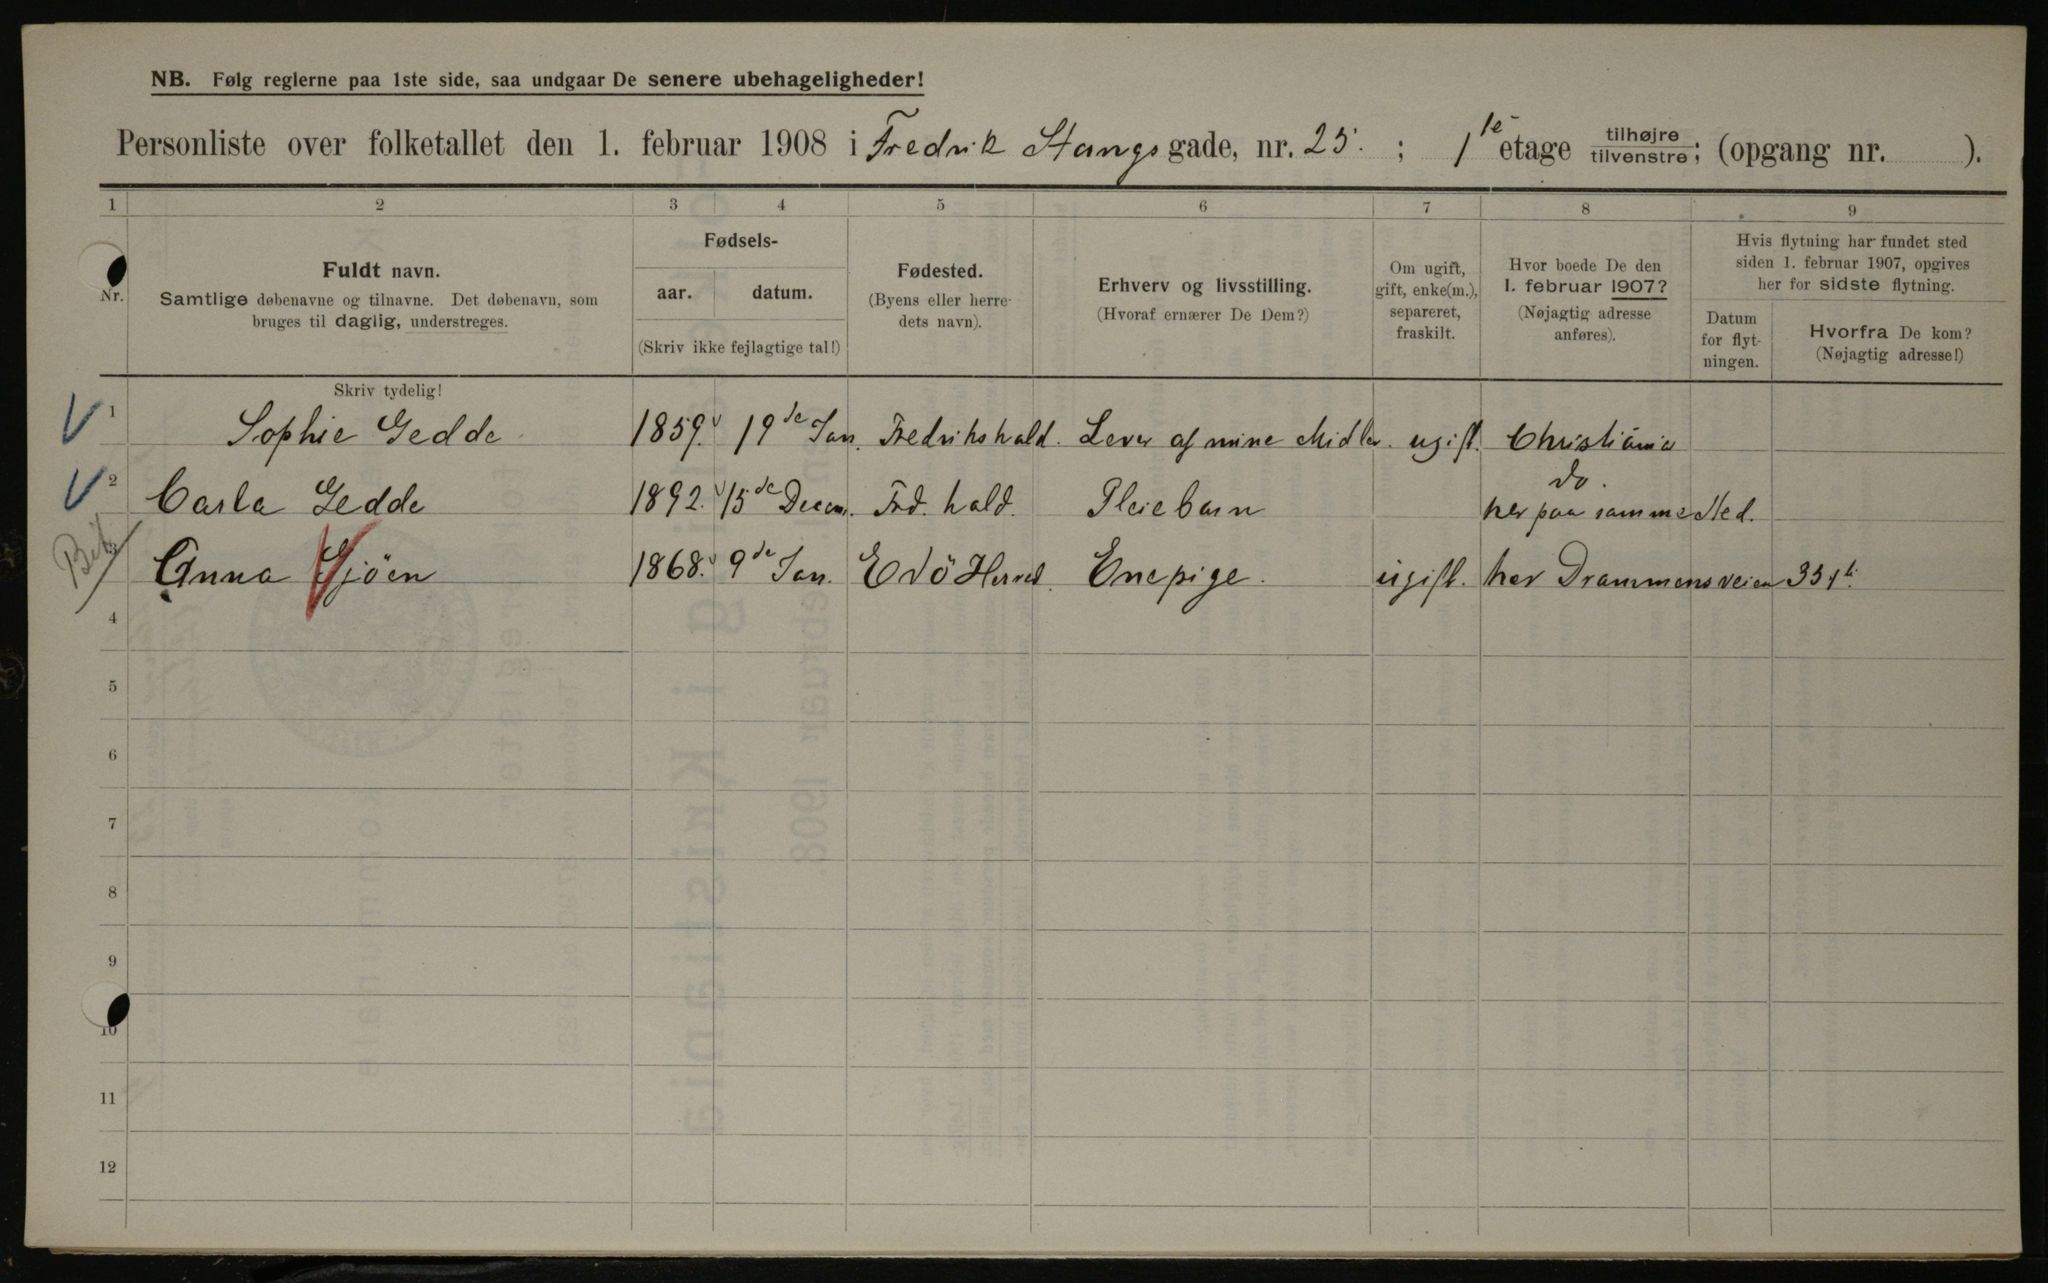 NB. Følg reglerne paa 1ste side, saa undgaar De senere ubehageligheder!
Personliste over folketallet den 1. februar 1908 i Fredrik Stangs gade, nr. 25. ; 1 1e etage tilhøjre tilvenstre; (opgang nr. ).
1 2 3 4 5 6 7 8 9
Nr.
Fuldt navn.
Samtlige døbenavne og tilnavne. Det døbenavn, som
bruges til daglig, understreges.
Skriv tydelig!
Fødsels-
aar. datum.
(Skriv ikke fejlagtige tal!)
Fødested.
(Byens eller herre-
dets navn).
Erhverv og livsstilling.
(Hvoraf ernærer De Dem?)
Om ugift,
gift, enke(m.),
separeret,
fraskilt.
Hvor boede De den
1. februar 1907?
(Nøjagtig adresse
anføres).
Hvis flytning har fundet sted
siden 1. februar 1907, opgives
her for sidste flytning.
Datum
for flyt-
ningen.
Hvorfra De kom?
(Nøjagtig adresse!)
1 Sophie Gedde 1859. 19de Jan. Fredrikshald. Lever af mine Midler. ugift. Christiania
do.
2 Carla Gedde 1892. 15de Decem. Frd. hald. Pleiebarn her paa samme Sted.
3 Anna Gjöen 1868. 9de Jan. Herred. Enepige. ugift. her Drammensveien
4
5
6
7
8
9
10
11
12